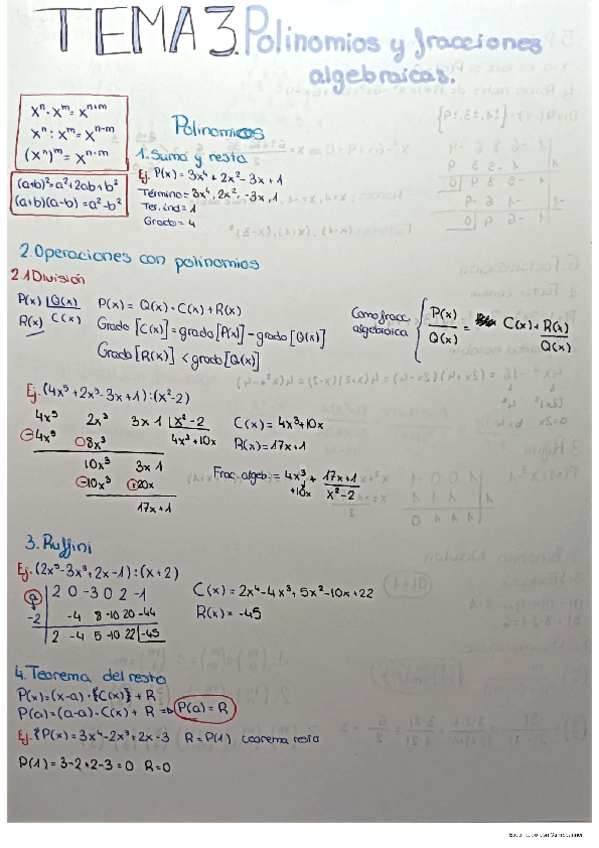 TEMA 3. Polinomios y fracciones
algebraicas.
xⁿ · xᵐ = xⁿ⁺ᵐ
xⁿ : xᵐ = xⁿ⁻ᵐ
(xⁿ)ᵐ = xⁿ⁻ᵐ
(a+b)² = a² + 2ab + b²
(a+b)(a-b) = a² - b²
Polinomios
1. Suma y resta
Ej. P(x) = 3x⁴ + 2x² - 3x + 1
Término = 3x⁴, 2x², -3x, 1
Ter. ind = 1
Grado = 4
2. Operaciones con polinomios
2.1 División
P(x) |Q(x)
R(x) C(x)
P(x) = Q(x) · C(x) + R(x)
Grado [C(x)] = grado [P(x)] - grado [Q(x)]
Grado [R(x)] < grado [Q(x)]
Como fracc. algebraica { P(x)/Q(x) = C(x) + R(x)/Q(x)
Ej. (4x⁵ + 2x³ - 3x + 1) : (x² - 2)
4x⁵ 2x³ 3x 1 |x² - 2
-4x⁵ 8x³ 4x³ + 10x
10x³ 3x 1
-10x³ +20x
17x + 1
C(x) = 4x³ + 10x
R(x) = 17x + 1
Frac. algeb. = 4x³ + 10x + 17x + 1/x² - 2
3. Ruffini
Ej. (2x⁵ - 3x³ + 2x - 1) : (x + 2)
a | 2 0 -3 0 2 -1
-2 | -4 8 -10 20 -44
2 -4 5 -10 22 |-45
C(x) = 2x⁴ - 4x³ + 5x² - 10x + 22
R(x) = -45
4. Teorema del resto
P(x) = (x-a) · {C(x)} + R
P(a) = (a-a) · C(x) + R ⇒ P(a) = R
Ej. {P(x) = 3x⁴ - 2x³ + 2x - 3 R = P(1) teorema resto
P(1) = 3 - 2 + 2 - 3 = 0 R = 0